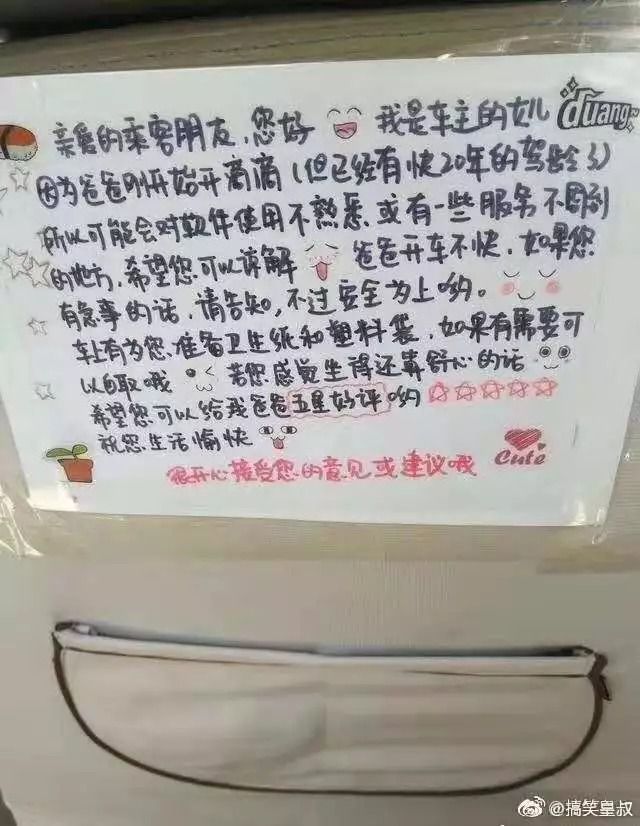 亲爱的乘客朋友,您好 我是车主的女儿
duang
因为爸爸刚开始开滴滴(但已经有快20年的驾龄了)
所以可能会对软件使用不熟悉或有一些服务不周到
的地方,希望您可以谅解 爸爸开车不快,如果您
有急事的话,请告知,不过安全为上哟。
车上有为您准备卫生纸和塑料袋,如果有需要可
以自取哦 若您感觉坐得还算舒心的话
希望您可以给我爸爸五星好评哟
祝您生活愉快
Cute
很开心接受您的意见或建议哦
@搞笑皇叔